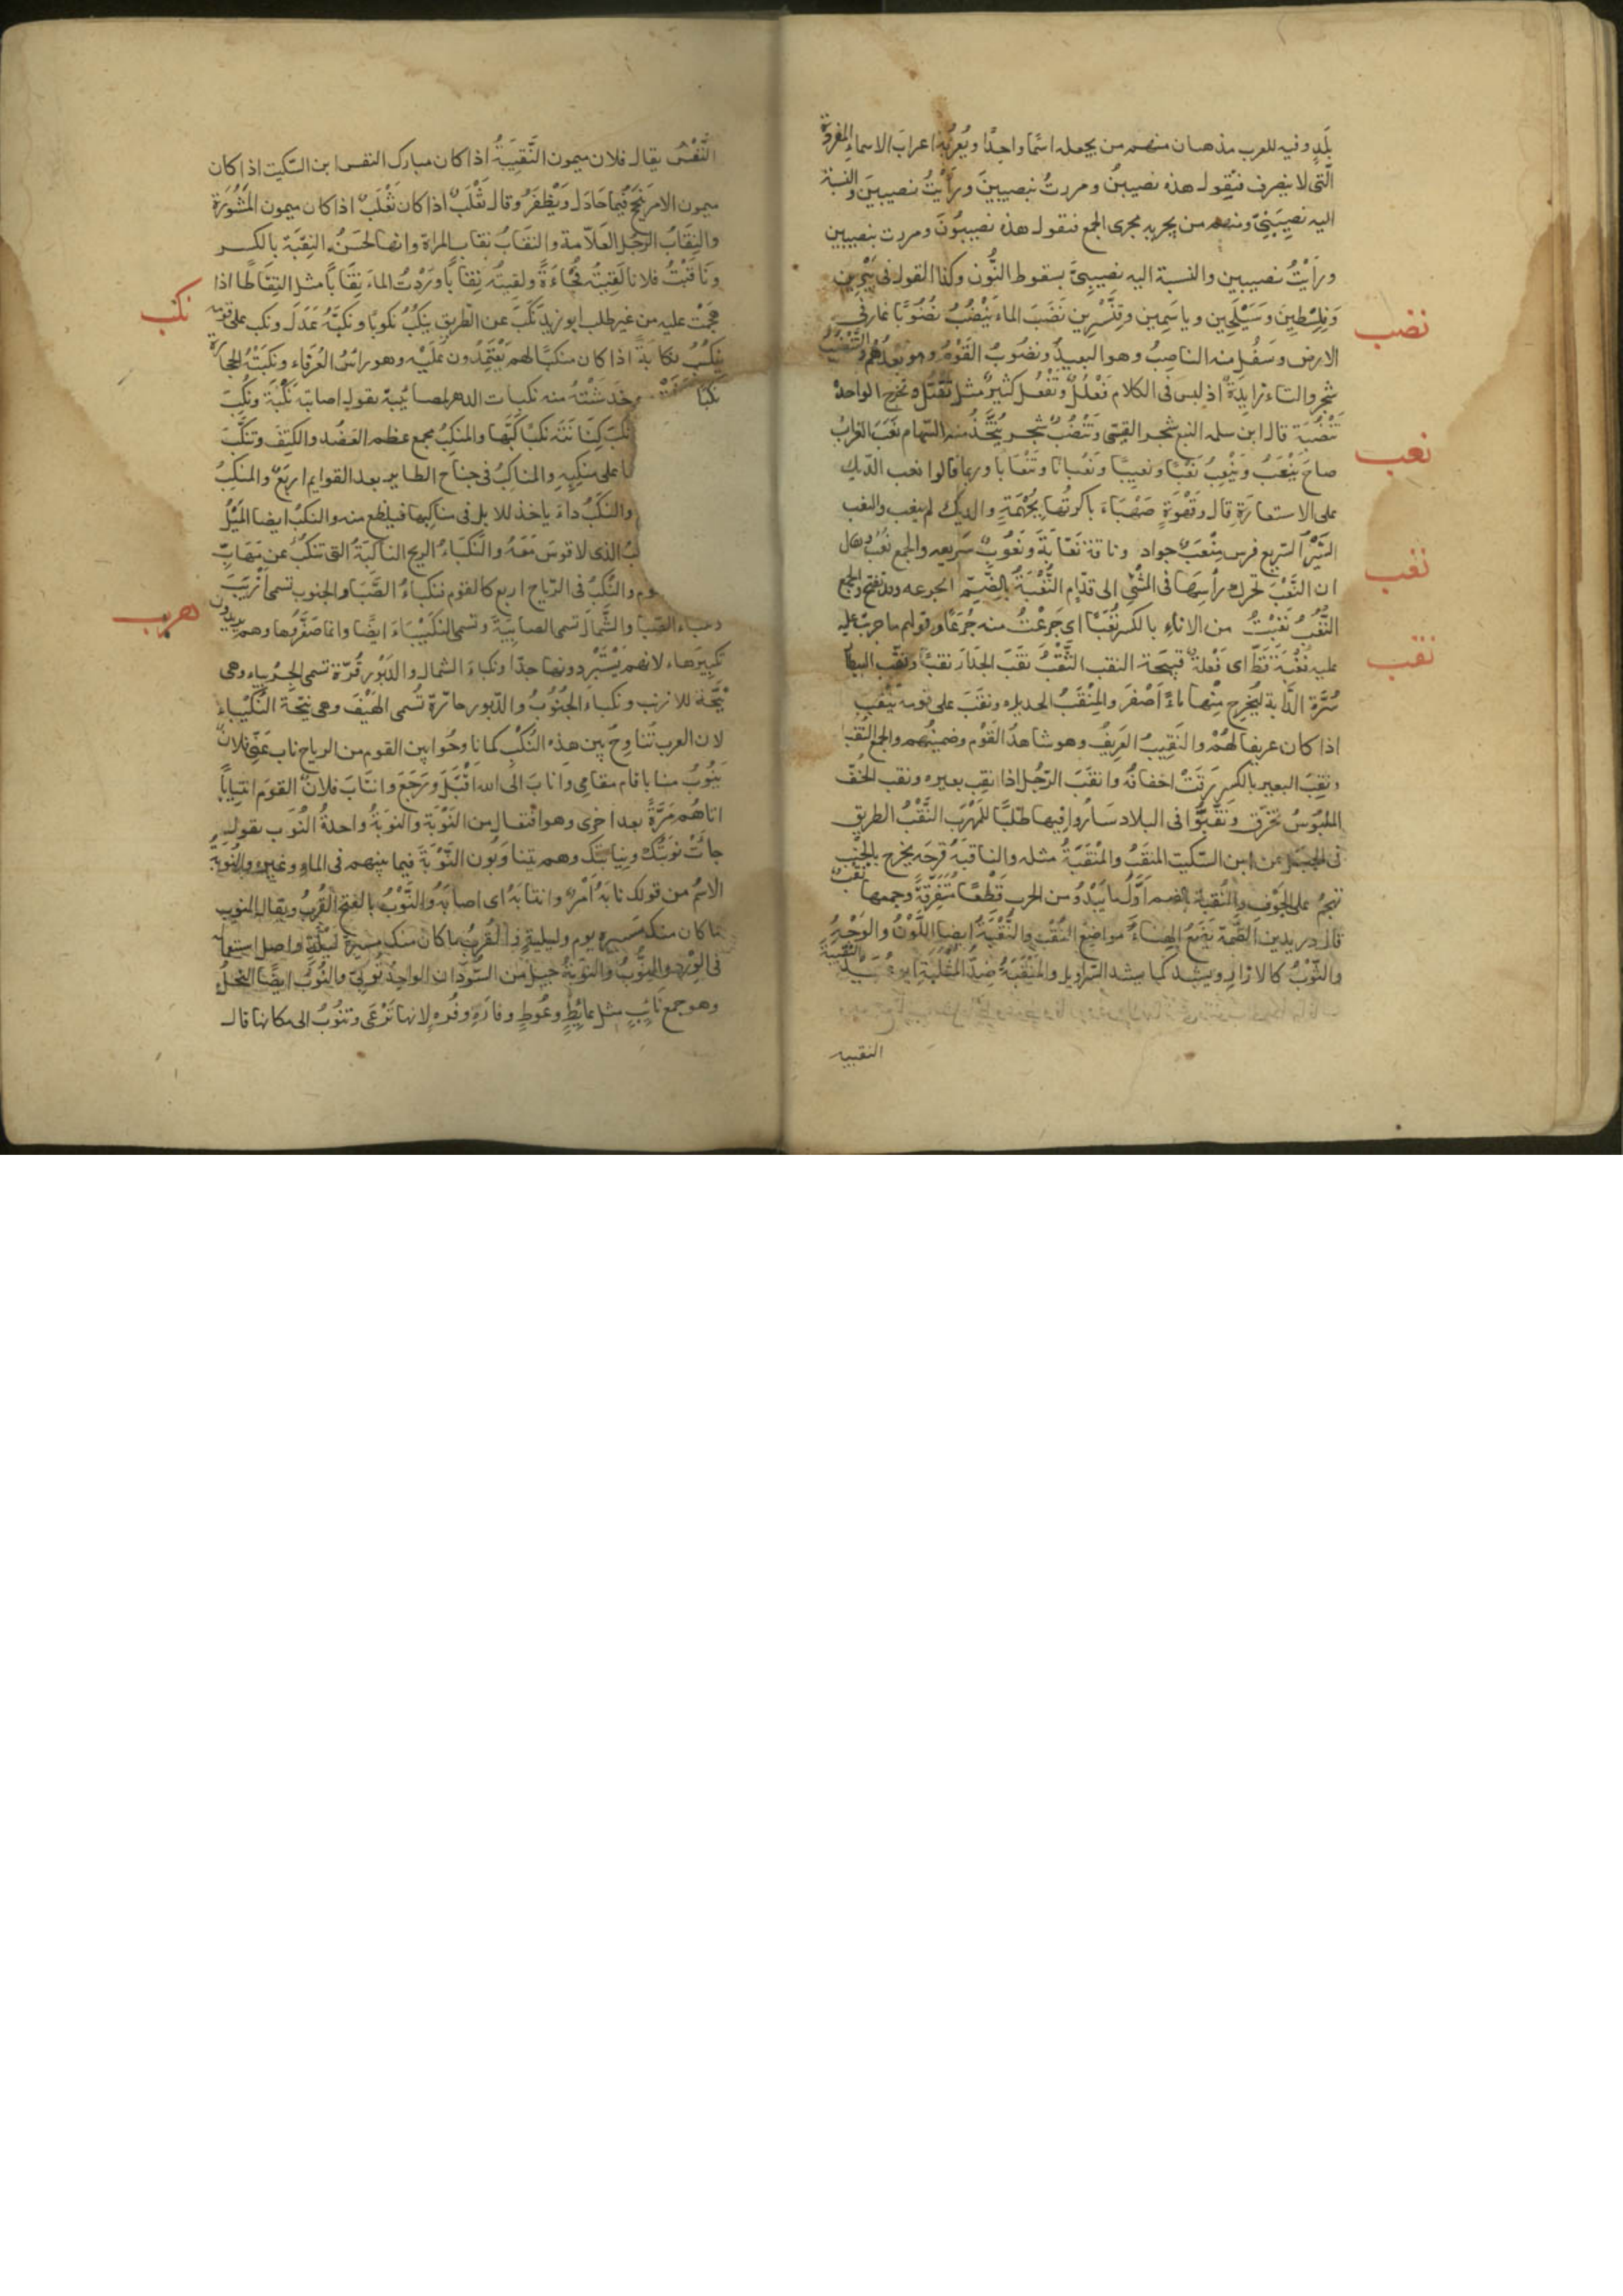 بلد وفيه للعرب مذهبان منهم من يجعله اسما واحدا ويعربه اعراب الاسماء المفردة
التى لا ينصرف فيقول هذه نصيبينُ ومررت بنصيبينَ ورأيت نصيبينَ والنسبة
اليه نصيبينىّ ومنهم من يجريه مجرى الجمع فنقول هذه نصيبون ومررت بنصيبين
ورأيت نصيبين والنسبة اليه نصيبىّ بسقوط النون وكذا القول فى يبرين
نضب
وفلسطين وسيلحين وياسمين وقنسرين نضب الماء ينضب نضوبا غار فى
الارض وسفل منه الناضب وهو البعيد ونضوب القوم وهو بعدهم والتنضب
شجر والتاء زايدة اذ ليس فى الكلام فعلل وتفعل كثير مثل تقتل وتخرج الواحدة
تنضبة قال ابن سلمه النبع شجر القسى وتنضب شجر يتخذ منه السهام نعب الغراب
نعب
صاح ينعب وينعب نعبا ونعيبا ونعبانا وتنعابا وربما قالوا نعب الديك
على الاستعارة قال وقهوة صهباء باكرتها بجهمة والديك لم ينعب والنعب
السير السريع فرس منعب جواد وناقة نعابة ونعوب سريعه والجمع نعب ويقال
نغب
ان النعب تحرك رأسها فى المشى الى قدام النغبة بالضم الجرعه وقد تفتح والجمع
النغب نغبت من الاناء بالكسر نغبا اى جرعت منه جرعا وقولهم ما جربت عليه
نقب
عليه نغبة قط اى فعلة قبيحة النقب الثقب نقب الجدار نقبا ونقب البيطار
سرة الدابة ليخرج منها ماء اصفر والمنقب الحديده ونقب على قومه ينقب
اذا كان عريفا لهم والنقيب العريف وهو شاهد القوم وضمينهم والجمع النقبا
ونقب البعير بالكسر رقت اخفافه وانقب الرجل اذا نقب بعيره ونقب الخف
الملبوس تخرق ونقبوا فى البلاد ساروا فيها طلبا للمهرب النقب الطريق
فى الجبل عن ابن السكيت المنقب والمنقبة مثله والناقبة قرحه يخرج بالجنب
تهجم على الجوف والنقبة بالضم اول ما يبدو من الجرب قطعا متفرقة وجمعها نقب
قال دريد بن الصمة يضع الهناء مواضع النقب والنقبة ايضا اللون والوجه
والثوب كالازار ويشد كما يشد السراويل والمنقبة ضد المثلبة النقيبة
النقيبه
النفس يقال فلان ميمون النقيبة اذا كان مبارك النفس ابن السكيت اذا كان
ميمون الامر ينجح فيما حاول ويظفر وقال ثعلب اذا كان ثعلب اذا كان ميمون المشورة
والنقاب الرجل العلامة والنقاب نقاب المراة وانها لحسن النقبة بالكسر
وناقبت فلانا لقيته فجاءة ولقيته نقابا ووردت الماء نقابا مثل التقاطا اذا
نكب
هجمت عليه من غير طلب ابو زيد نكب عن الطريق ينكب نكوبا ونكبه عدل ونكب على قومه
ينكب نكابة اذا كان منكبا لهم يعتمدون عليه وهو راس العرفاء ونكبته الحجارة
نكبا وخدشته منه نكبات الدهر لمصائبه نقول اصابته نكبة ونكب
نكب كنانته نكبا كبها والمنكب مجمع عظم العضد والكتف وتنكب
على منكبه والمناكب فى جناح الطاير بعد القوايم اربع والمنكب
والنكب داء ياخذ للابل فى مناكبها فيظلع منه والنكب ايضا الميل
الذى لا قوس معه والنكباء الريح الناكبة التى تنكب عن مهاب
والنكب فى الرياح اربع كالقوم فنكباء الصبا والجنوب تسمى ازيب
ونكباء الصبا والشمال تسمى الصابية وتسمى النكيباء ايضا وانما صغروها وهم يريدون
هرب
تكبيرها لانهم يستبردونها جدا ونكباء الشمال والدبور قرة تسمى الجربياء وهى
نيحة للازيب ونكباء الجنوب والدبور حارة تسمى الهيف وهى نيحة النكيباء
لان العرب تناوح بين هذه النكب كما ناوحوا بين القوم من الرياح ناب عنى فلان
ينوب منابا قام مقامى واناب الى الله اقبل ورجع وانتاب فلان القوم انتيابا
اتاهم مرة بعد اخرى وهو افتعال من النوبة والنوبة واحدة النوب نقول
جاءت نوبتك ونيابتك وهم يتناوبون النوبة فيما بينهم فى الماء وغيره والنوبة
الاسم من قولك نابه امر وانتابه اى اصابه والنوب بالفتح القرب ويقال النوب
ما كان منك مسيره يوم وليلة والقرب ما كان منك مسيرة ليلة واصل استعماله
فى الورد والنوب والنوبة جيل من السودان الواحد نوبى والنوب ايضا النحل
وهو جمع نايب مثل عايط وعوط وفاره وفره لانها ترعى وتنوب الى مكانها قال